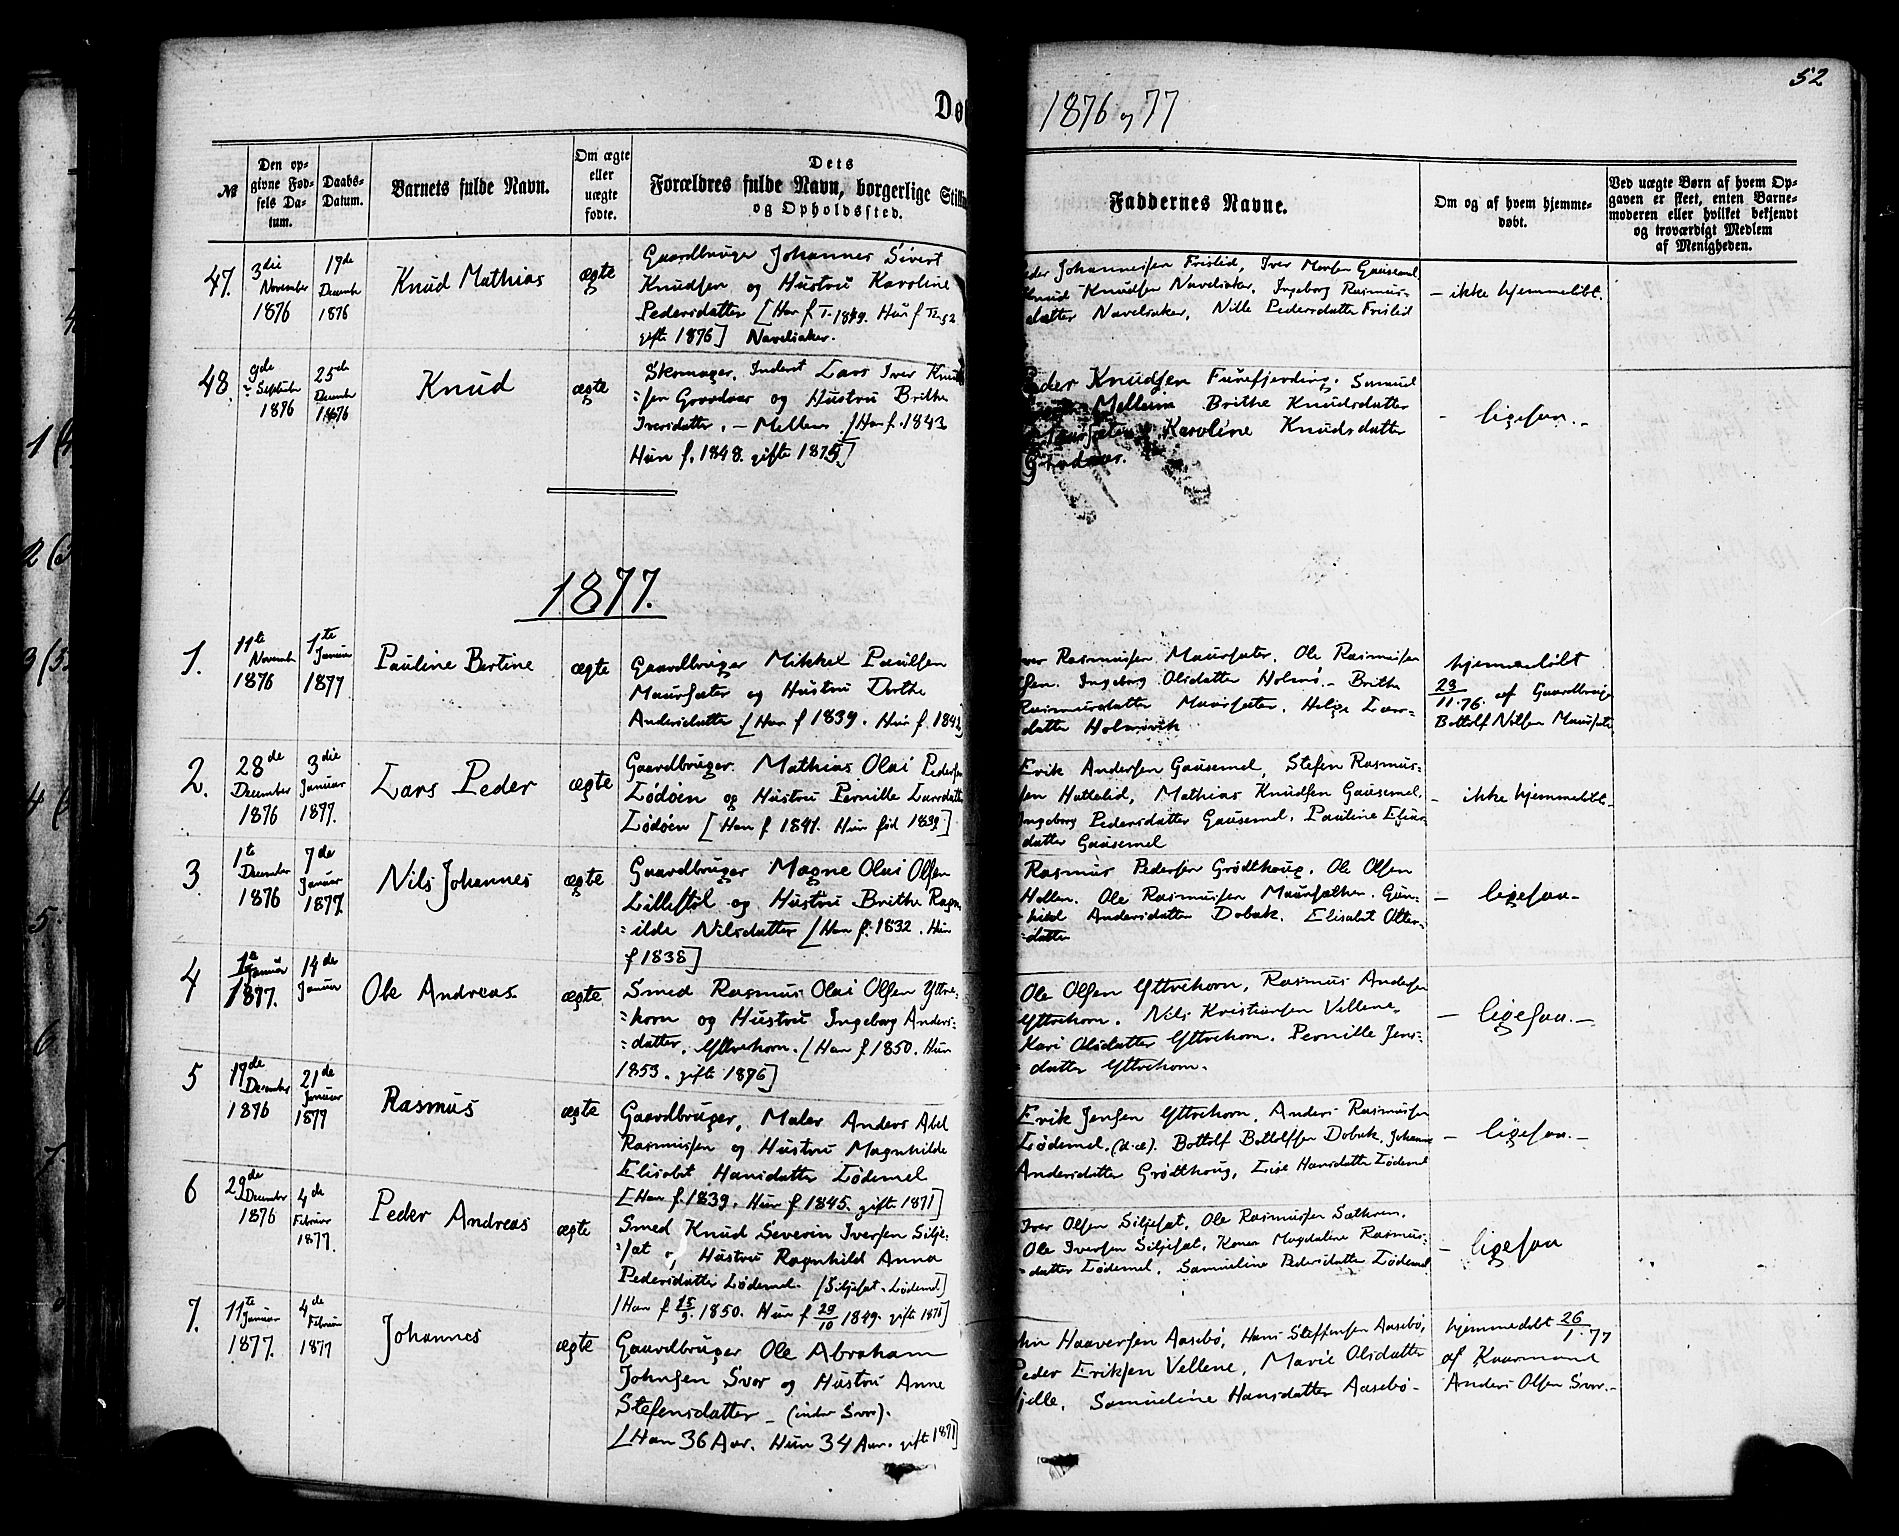 52
1876 og 77
№
Den op-
givne Fød-
sels Da-
tum.
Daabs-
Datum.
Barnets fulde Navn.
Om ægte
eller
uægte
fødte.
Dets
Forældres fulde Navn, borgerlige
og Opholdssted.
Faddernes Navne.
Om og af hvem hjemme-
døbt.
Ved uægte Børn af hvem Op-
gaven er skeet, enten Barne-
moderen eller hvilket bekjendt
og troværdigt Medlem
af Menigheden.
47.
3die
November
1876
17de
Decembr
1876
Knud Mathias
ægte
Gaardbruger Johannes Sivert
Knudsen og Hustru Karoline
Pedersdatter [Han f. 1849. Hun f
gift 1876] Navelsaker.
Johannesen Frislid, Iver Monsen Gausemel
Knud Knudsen Navelsaker, Ingeborg Rasmus-
datter Navelsaker, Nille Pedersdatter Frislid
- ikke hjemmedøbt.
48
9de
Septembr
1876
25de
Decembr
1876
Knud
ægte
Skomager, Inderst Lars Iver
sen Grodaas og Hustru Brithe
Iversdatter. - Mellem [Han f. 1843
Hun f. 1848. gift 1875]
Peder Knudsen Furefjerding. Samuel
Mellem Brithe Knudsdatter
Karoline Knudsdatter
Grodaas.
- ligesaa. -
1877.
1.
11te
Novembr
1876
1te
Januar
1877
Pauline Bertine
ægte
Gaardbruger Mikkel Paulsen
Maursæter og Hustru Dorthe
Andersdatter [Han f 1839. Hun f. 1842]
Iver Rasmussen Maursæter. Ole Rasmussen
Ingeborg Olsdatter Holmø. - Brithe
Rasmusdatter Maursæter. Helge Lars-
datter Holmvik
hjemmedøbt
23
11.76. af Gaardbruger
Bottolf Nilsen Maursæter
2.
28de
December
1876
3die
Januar
1877.
Lars Peder
ægte
Gaardbruger. Mathias Olai Pedersen
Lødøen og Hustru Pernille Larsdatter
Lødøen [Han f. 1841. Hun fød 1839]
Erik Andersen Gausemel, Stefen Rasmus-
sen Hattelid, Mathias Knudsen Gausemel.
Ingeborg Pedersdatter Gausemel. Pauline Elias
datter Gausemel
- ikke hjemmedøbt -
3.
1te
December
1876
7de
Januar
1877.
Nils Johannes
ægte
Gaardbruger Magne Olai Olsen
Lillestøl og Hustru Brithe Ragn
ilde Nilsdatter [Han f. 1832. Hun
f 1838]
Rasmus Pedersen Grødthoug. Ole Olsen
Hollen. Ole Rasmussen Maursæther. Gun-
hild Andersdatter Dobak. Elisabet Otter-
datter
- ligesaa -
4
Januar
1877.
14de
Januar
Ole Andreas
ægte
Smed Rasmus Olai Olsen Yttre-
horn og Hustru Ingeborg Anders-
datter, Yttrehorn. [Han f. 1850. Hun
1853. gift 1876]
Ole Olsen Yttrehorn, Rasmus Andersen
Yttrehorn. Nils Kristiansen Vellene.
Kari Olsdatter Yttrehorn. Pernille Jens-
datter Yttrehorn.
- ligesaa. -
5
19de
December
1876
21de
Januar
1877
Rasmus
ægte
Gaardbruger, Maler Anders Abel
Rasmussen og Hustru Magnhilde
Elisabet Hansdatter Lødemel
[Han f. 1839. Hun f. 1845. gift 1871]
Erik Jensen Yttrehorn, Anders Rasmussen
Lødemel. (d.æ). Bottolf Bottolfsen Dobak. Johanne
Andersdatter Grødthoug, Lise Hansdatter Lødemel
- ligesaa. -
6
29de
Decembr
1876
4de
Februar
1877.
Peder Andreas
ægte
Smed Knud Severin Iversen Silje-
sæt og Hustru Ragnhild Anna
Pedersdatter Lødemel. [Siljesæt-Lødemel]
[Han f 15/9 1850. Hun f 29/10 1849. gift 1876]
Iver Olsen Siljesæt, Ole Rasmussen Sæthren.
Ole Iversen Siljesæt, Kone Magdalene Rasmus-
datter Lødemel, Samueline Pedersdatter Lødemel
- ligesaa
7.
11te
Januar
1877.
4de
Februar
1877
Johannes
ægte
Gaardbruger Ole Abraham
Johnsen Svor og Hustru Anne
Stefensdatter - (indre Svor).
[Han 36 Aar. Hun 34 Aar. gift 1871]
Haaversen Aasebø, Hans Steffensen Aasebø,
Peder Eriksen Vellene, Marie Olsdatter
Samueline Hansdatter Aasebø -
hjemmedøbt 26
1.77
af Kaarmand
Anders Olsen Svor. -